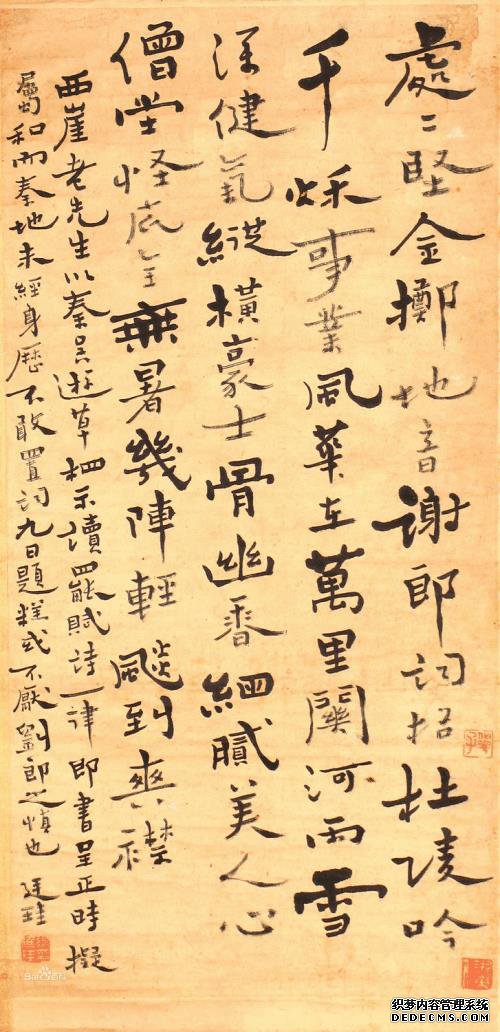 處〻堅金擲地音謝郎詞格杜陵吟
千秌事業風華在萬里關河雨雪
深健氣縱橫豪士骨幽香細膩美人心
僧堂怪底全無暑幾陣輕飈到爽襟
西崖老先生以秦吳遊草示讀罷賦詩一律即書呈正時擬
屬和而秦地未經身歷不敢置詞九日題糕或不厭劉郎之慎也 廷珪
Bai百科
织梦内容管理系统
DEDECMS.COM